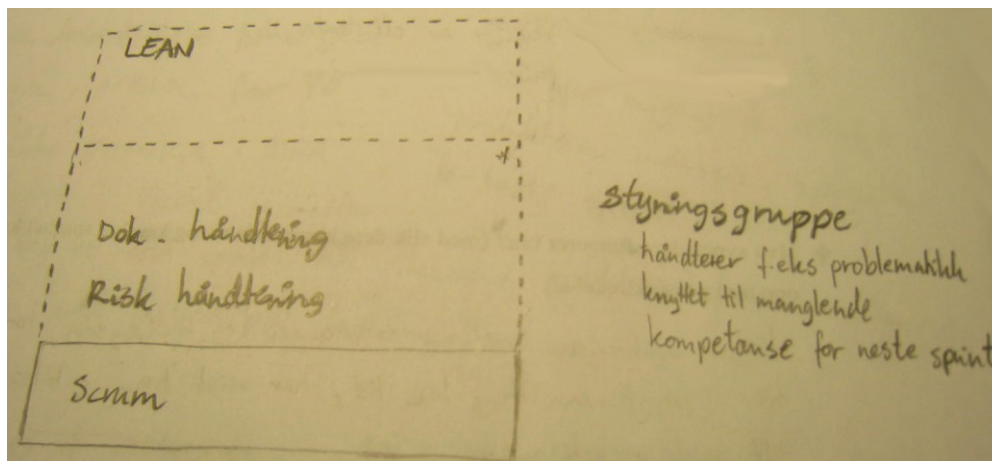 LEAN
Dok. håndtering
Risk håndtering
Scrum
styringsgruppe
håndterer f.eks problematikk
knyttet til manglende
kompetanse for neste sprint